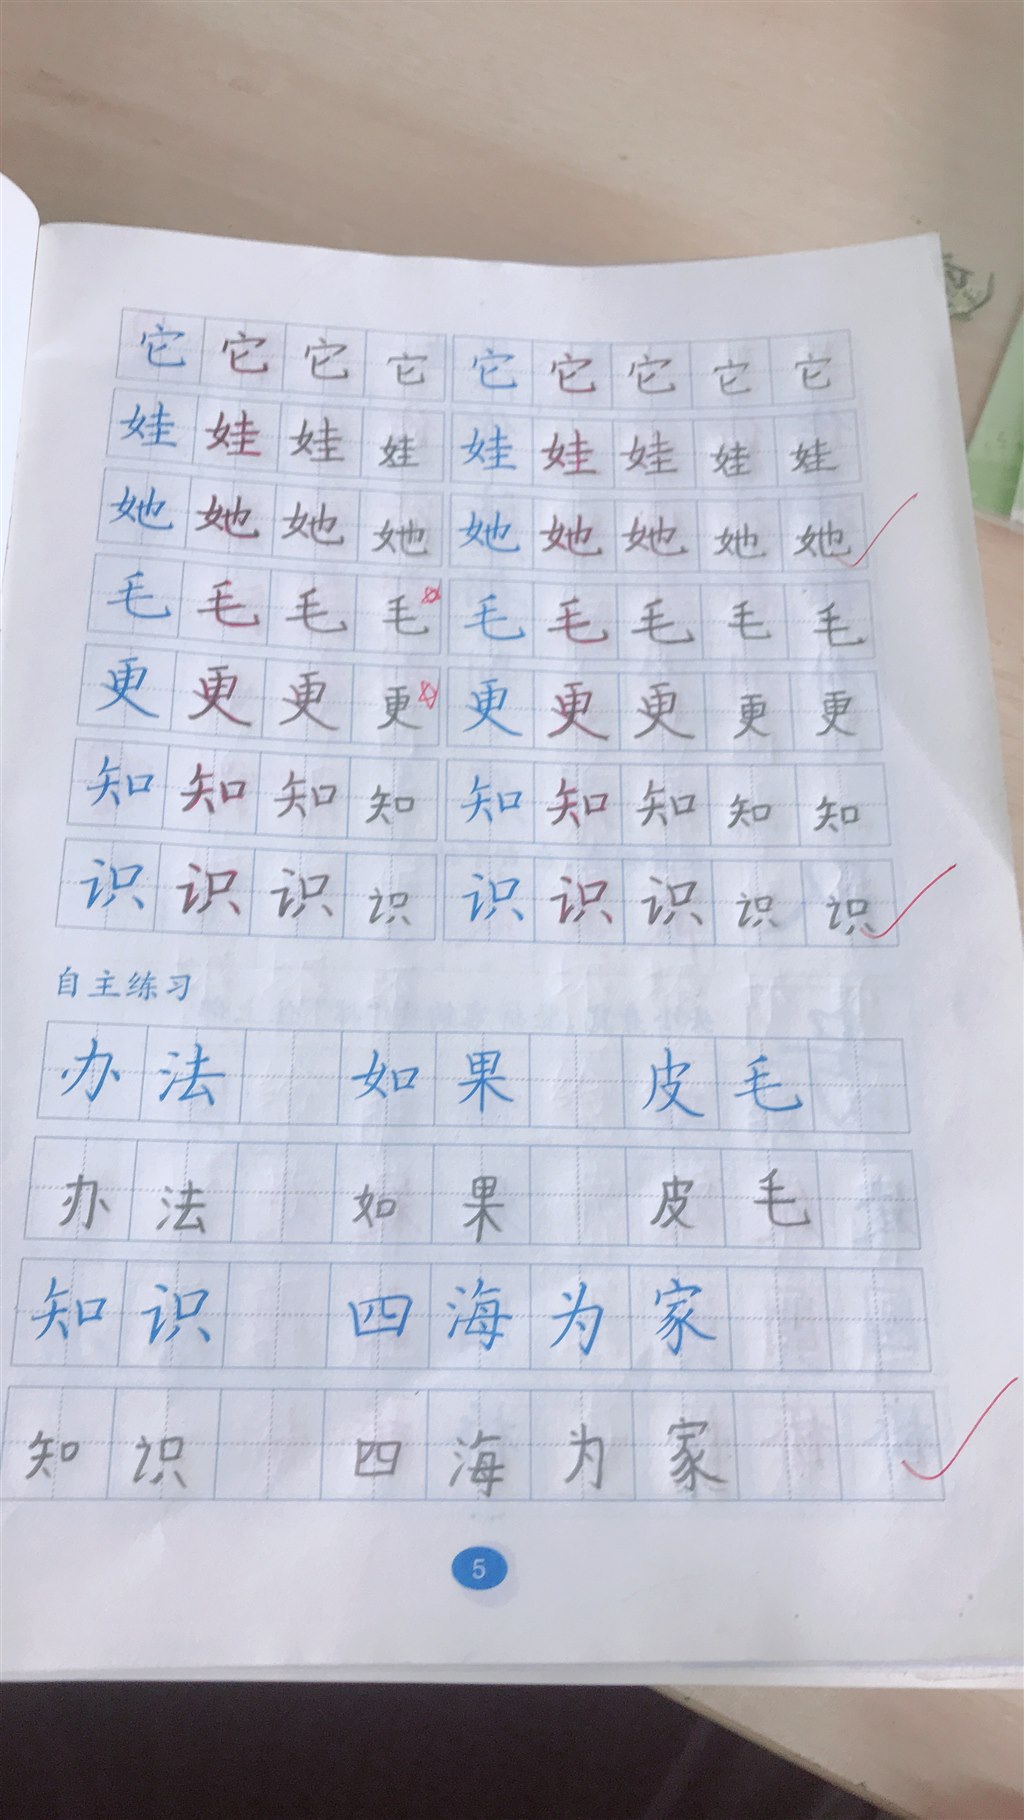 它它它它它它它它它
娃娃娃娃娃娃娃娃娃
她她她她她她她她她
毛毛毛毛毛毛毛毛毛
更更更更更更更更更
知知知知知知知知知
识识识识识识识识识
自主练习
办法 如果 皮毛
办法 如果 皮毛
知识 四海为家
知识 四海为家
5